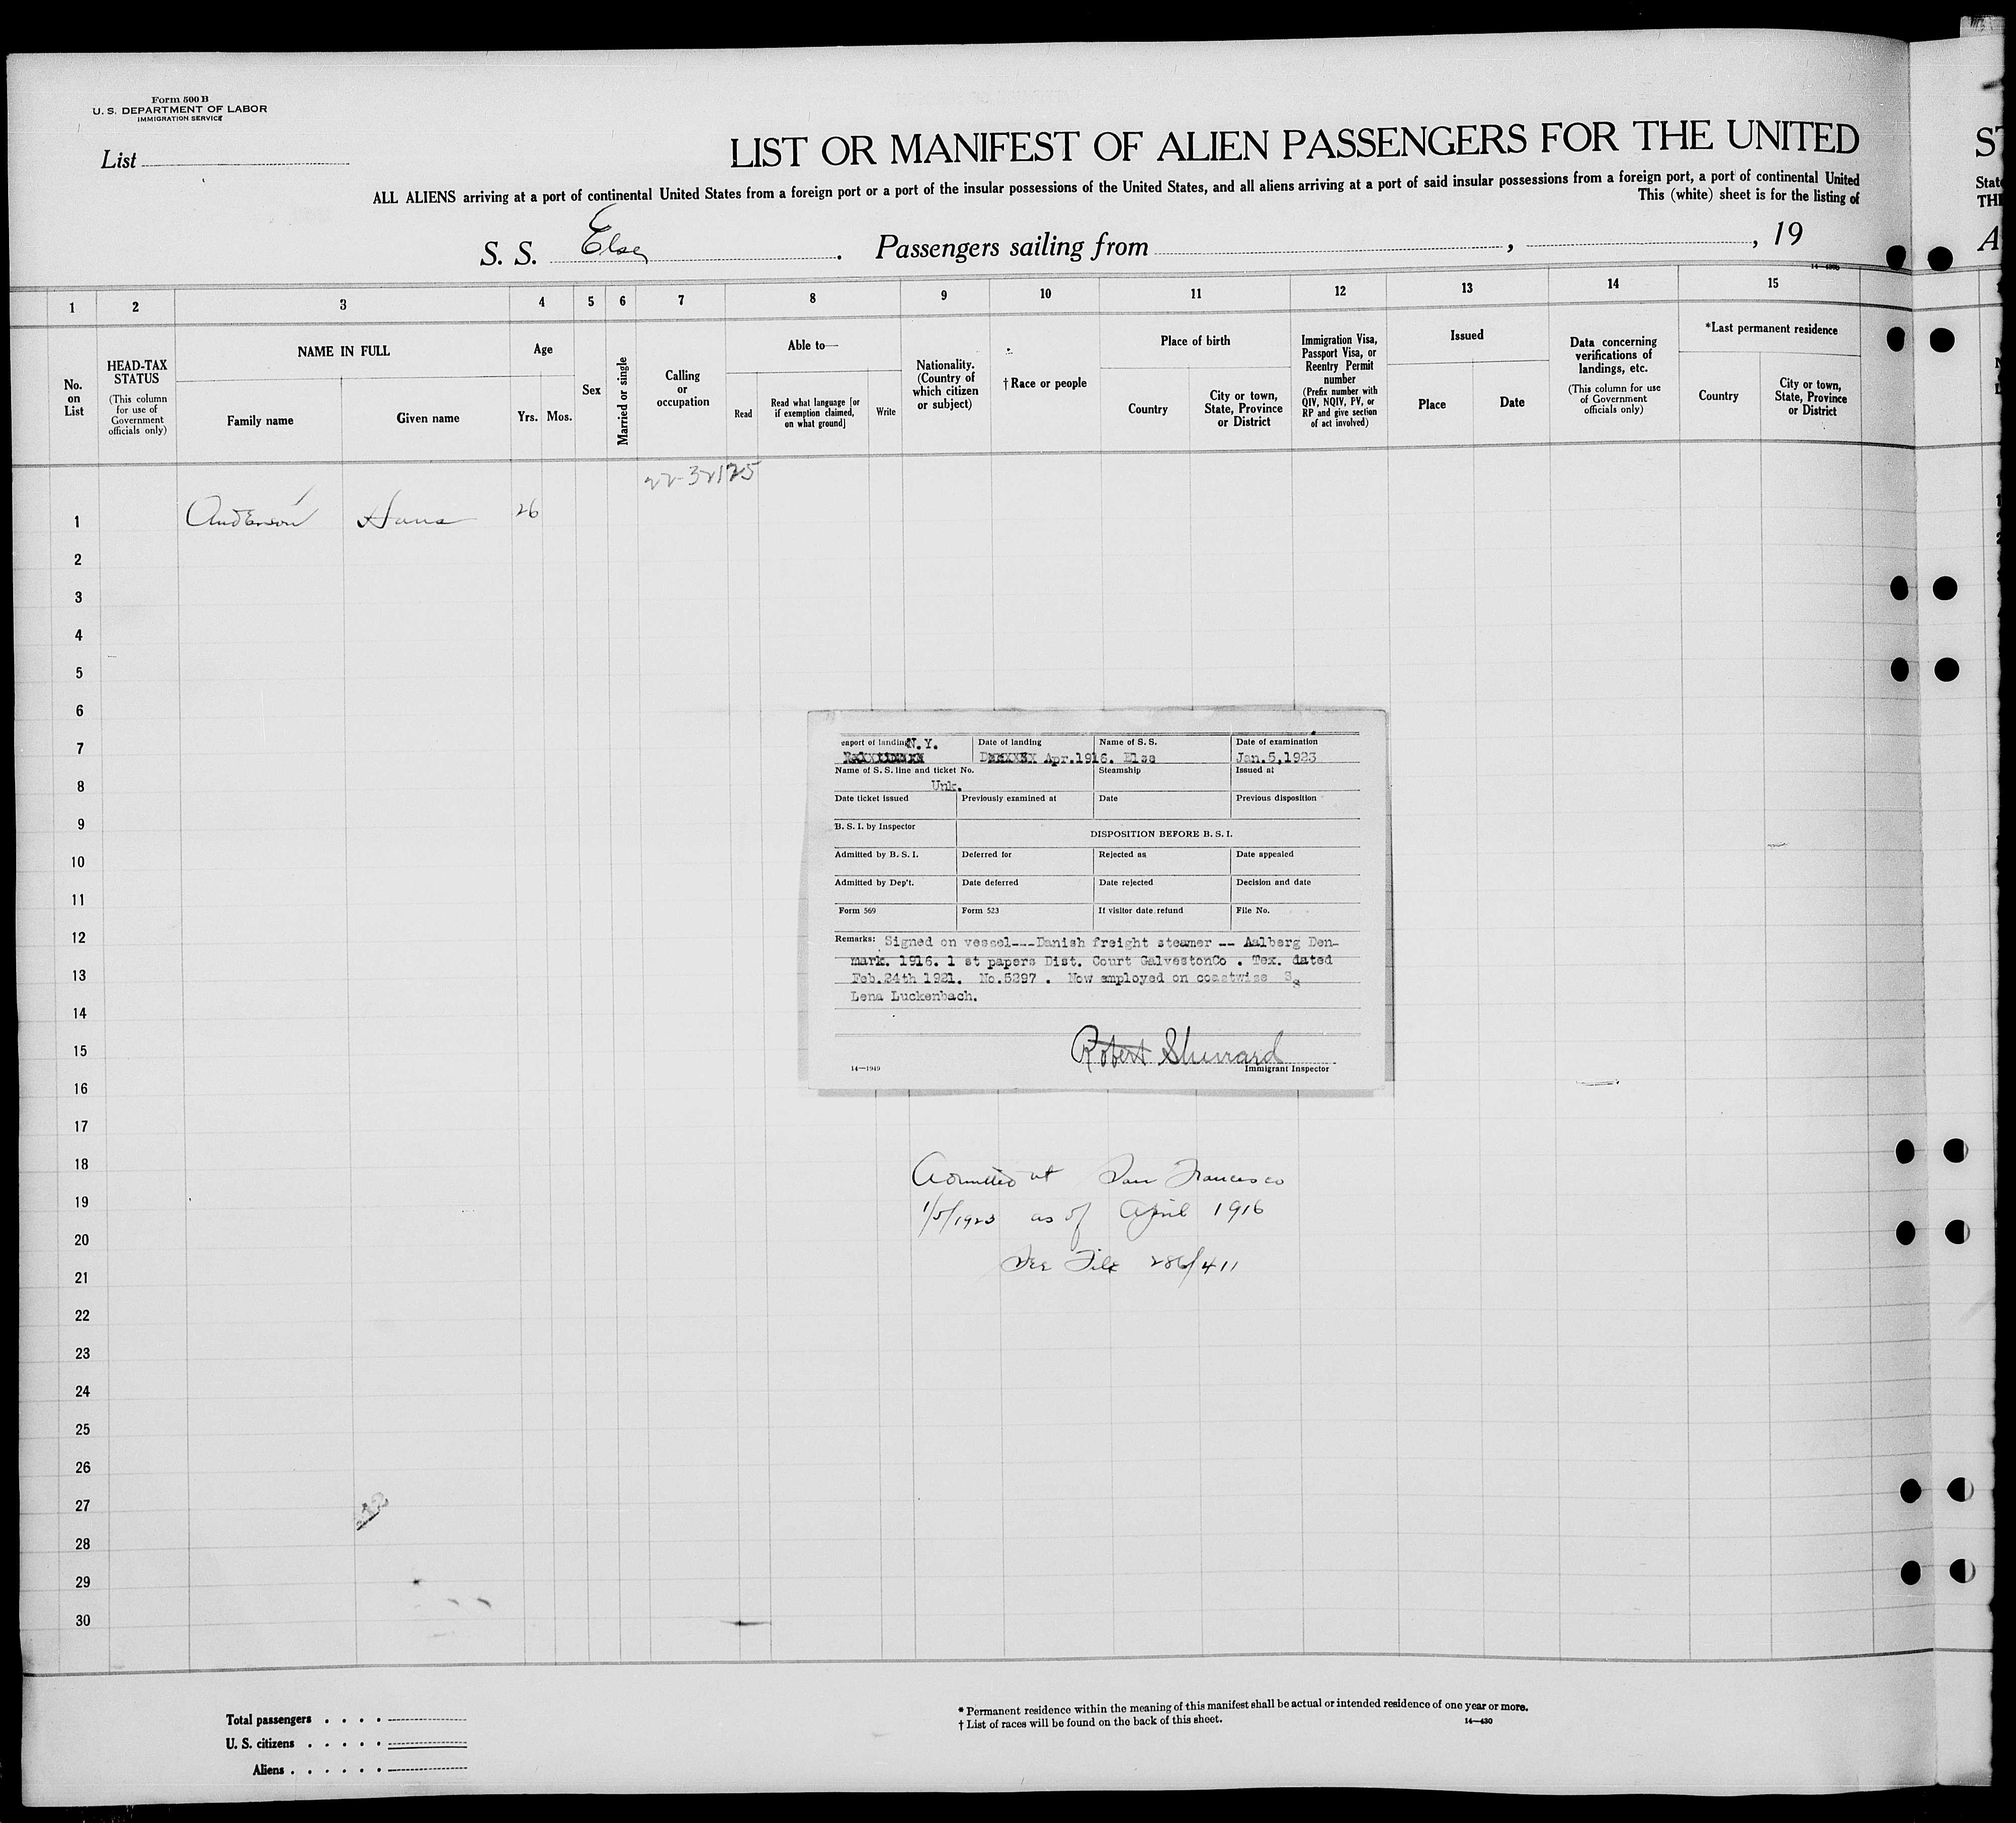 Form 500 B
U. S. DEPARTMENT OF LABOR
IMMIGRATION SERVICE
List
LIST OR MANIFEST OF ALIEN PASSENGERS FOR THE UNITED
ALL ALIENS arriving at a port of continental United States from a foreign port or a port of the insular possessions of the United States, and all aliens arriving at a port of said insular possessions from a foreign port, a port of continental United
This (white) sheet is for the listing of
S. S. Else . Passengers sailing from , , 19
1 2 3 4 5 6 7 8 9 10 11 12 13 14 15
No. on List
HEAD-TAX STATUS
(This column for use of Government officials only)
NAME IN FULL
Family name
Given name
Age
Yrs. Mos.
Sex
Married or single
Calling or occupation
Able to—
Read
Read what language [or if exemption claimed, on what ground]
Write
Nationality. (Country of which citizen or subject)
† Race or people
Place of birth
Country
City or town, State, Province or District
Immigration Visa, Passport Visa, or Reentry Permit number
(Prefix number with QIV, NQIV, PV, or RP and give section of act involved)
Issued
Place
Date
Data concerning verifications of landings, etc.
(This column for use of Government officials only)
*Last permanent residence
Country
City or town, State, Province or District
22-32125
1 Anderson Hans 26
2
3
4
5
6
7
8
9
10
11
12
13
14
15
16
17
18
19
20
21
22
23
24
25
26
27
28
29
30
eaport of landing N. Y.
Date of landing Apr.1916.
Name of S. S. Else
Date of examination Jan.5,1923
Name of S. S. line and ticket No. Unk.
Steamship
Issued at
Date ticket issued
Previously examined at
Date
Previous disposition
B. S. I. by Inspector
DISPOSITION BEFORE B. S. I.
Admitted by B. S. I.
Deferred for
Rejected as
Date appealed
Admitted by Dep't.
Date deferred
Date rejected
Decision and date
Form 569
Form 523
If visitor date refund
File No.
Remarks: Signed on vessel---Danish freight steamer -- Aalberg Den-
mark. 1916. 1 st papers Dist. Court GalvestonCo . Tex. dated
Feb.24th 1921. No.5297 . Now employed on coastwise Ss
Lena Luckenbach.
Robert Sherrard
14—1949
Immigrant Inspector
Admitted at San Francisco
1/5/1923 as of April 1916
See File 286/411
Total passengers . . . .
U. S. citizens . . . . .
Aliens . . . . . .
* Permanent residence within the meaning of this manifest shall be actual or intended residence of one year or more.
† List of races will be found on the back of this sheet.
14—430